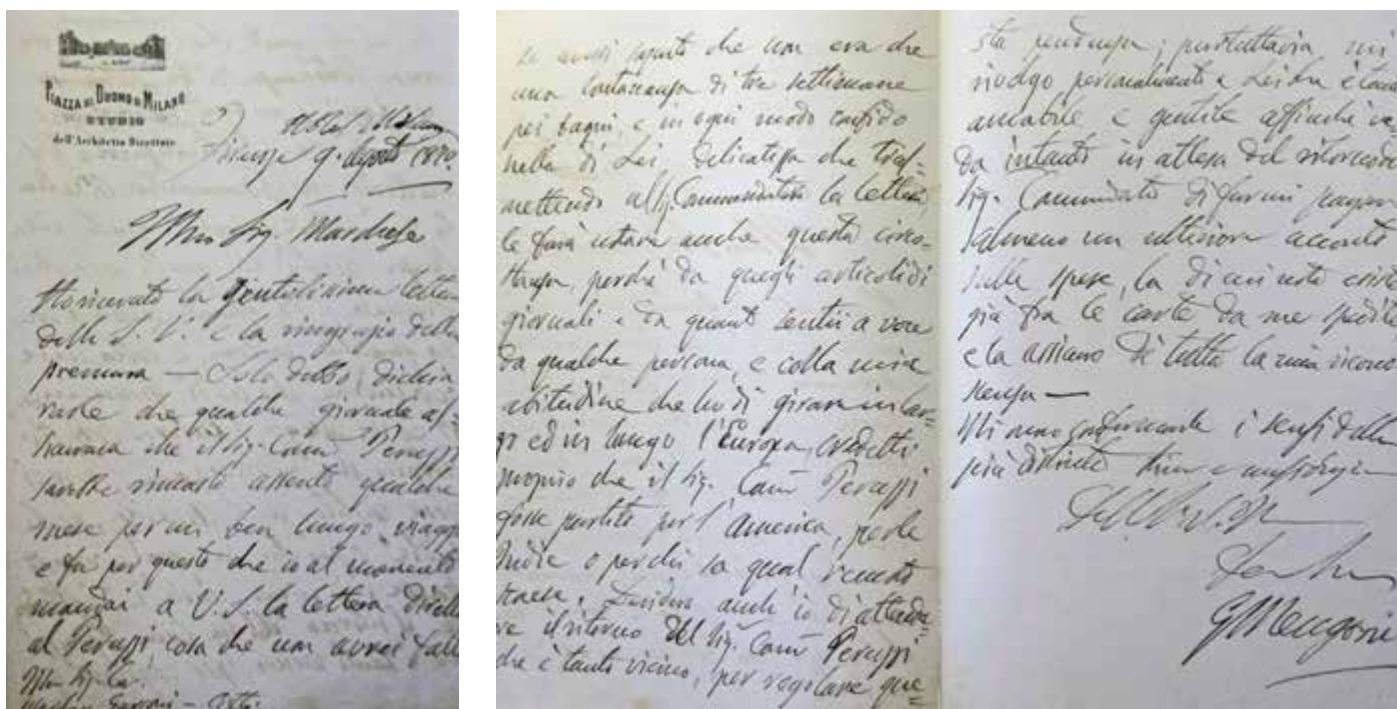 PIAZZA DEL DUOMO DI MILANO
STUDIO
dell'Architetto Direttore
Firenze 9. Agosto 1870.
Illmo Sig. Marchese
Ho ricevuto la gentilissima lettera
della S. V. e la ringrazio della
premura — Solo debbo dichia
rarle che qualche giornale af-
fermava che il Sig. Comm Peruzzi
sarebbe rimasto assente qualche
mese per un ben lungo viaggio
e fu per questo che io al momento
mandai a V. S. la lettera diretta
al Peruzzi, cosa che non avrei fatto
Illmo Sig.
Garzoni
se avessi saputo che non era che
una lontananza di tre settimane
pei bagni, e in ogni modo confido
nella di Lei delicatezza che tras-
mettendo al Sig. Commendatore la lettera,
le farà notare anche questa circo-
stanza, perché da quegli articoli di
giornali e da quanto sentii a voce
da qualche persona, e colla mia
abitudine che ho di girare in lar-
go ed in lungo l'Europa, credetti
proprio che il Sig. Comm Peruzzi
fosse partito per l'America, per le
Indie o per chi sa qual remota
Desidero anch'io di attende-
re il ritorno del Sig. Comm Peruzzi
che è tanto vicino, per regolare que-
sta pendenza; pur tuttavia mi
rivolgo personalmente a Lei che è tanto
amabile e gentile affinché ve
da intanto in attesa del ritorno del
Sig. Commendator di farmi pagare
almeno un ulteriore acconto
sulle spese, la di cui nota esiste
già fra le carte da me spedite,
e la assicuro di tutta la mia ricono
scenza —
Mi confermo i sensi della
più distinta stima e
GMengoni